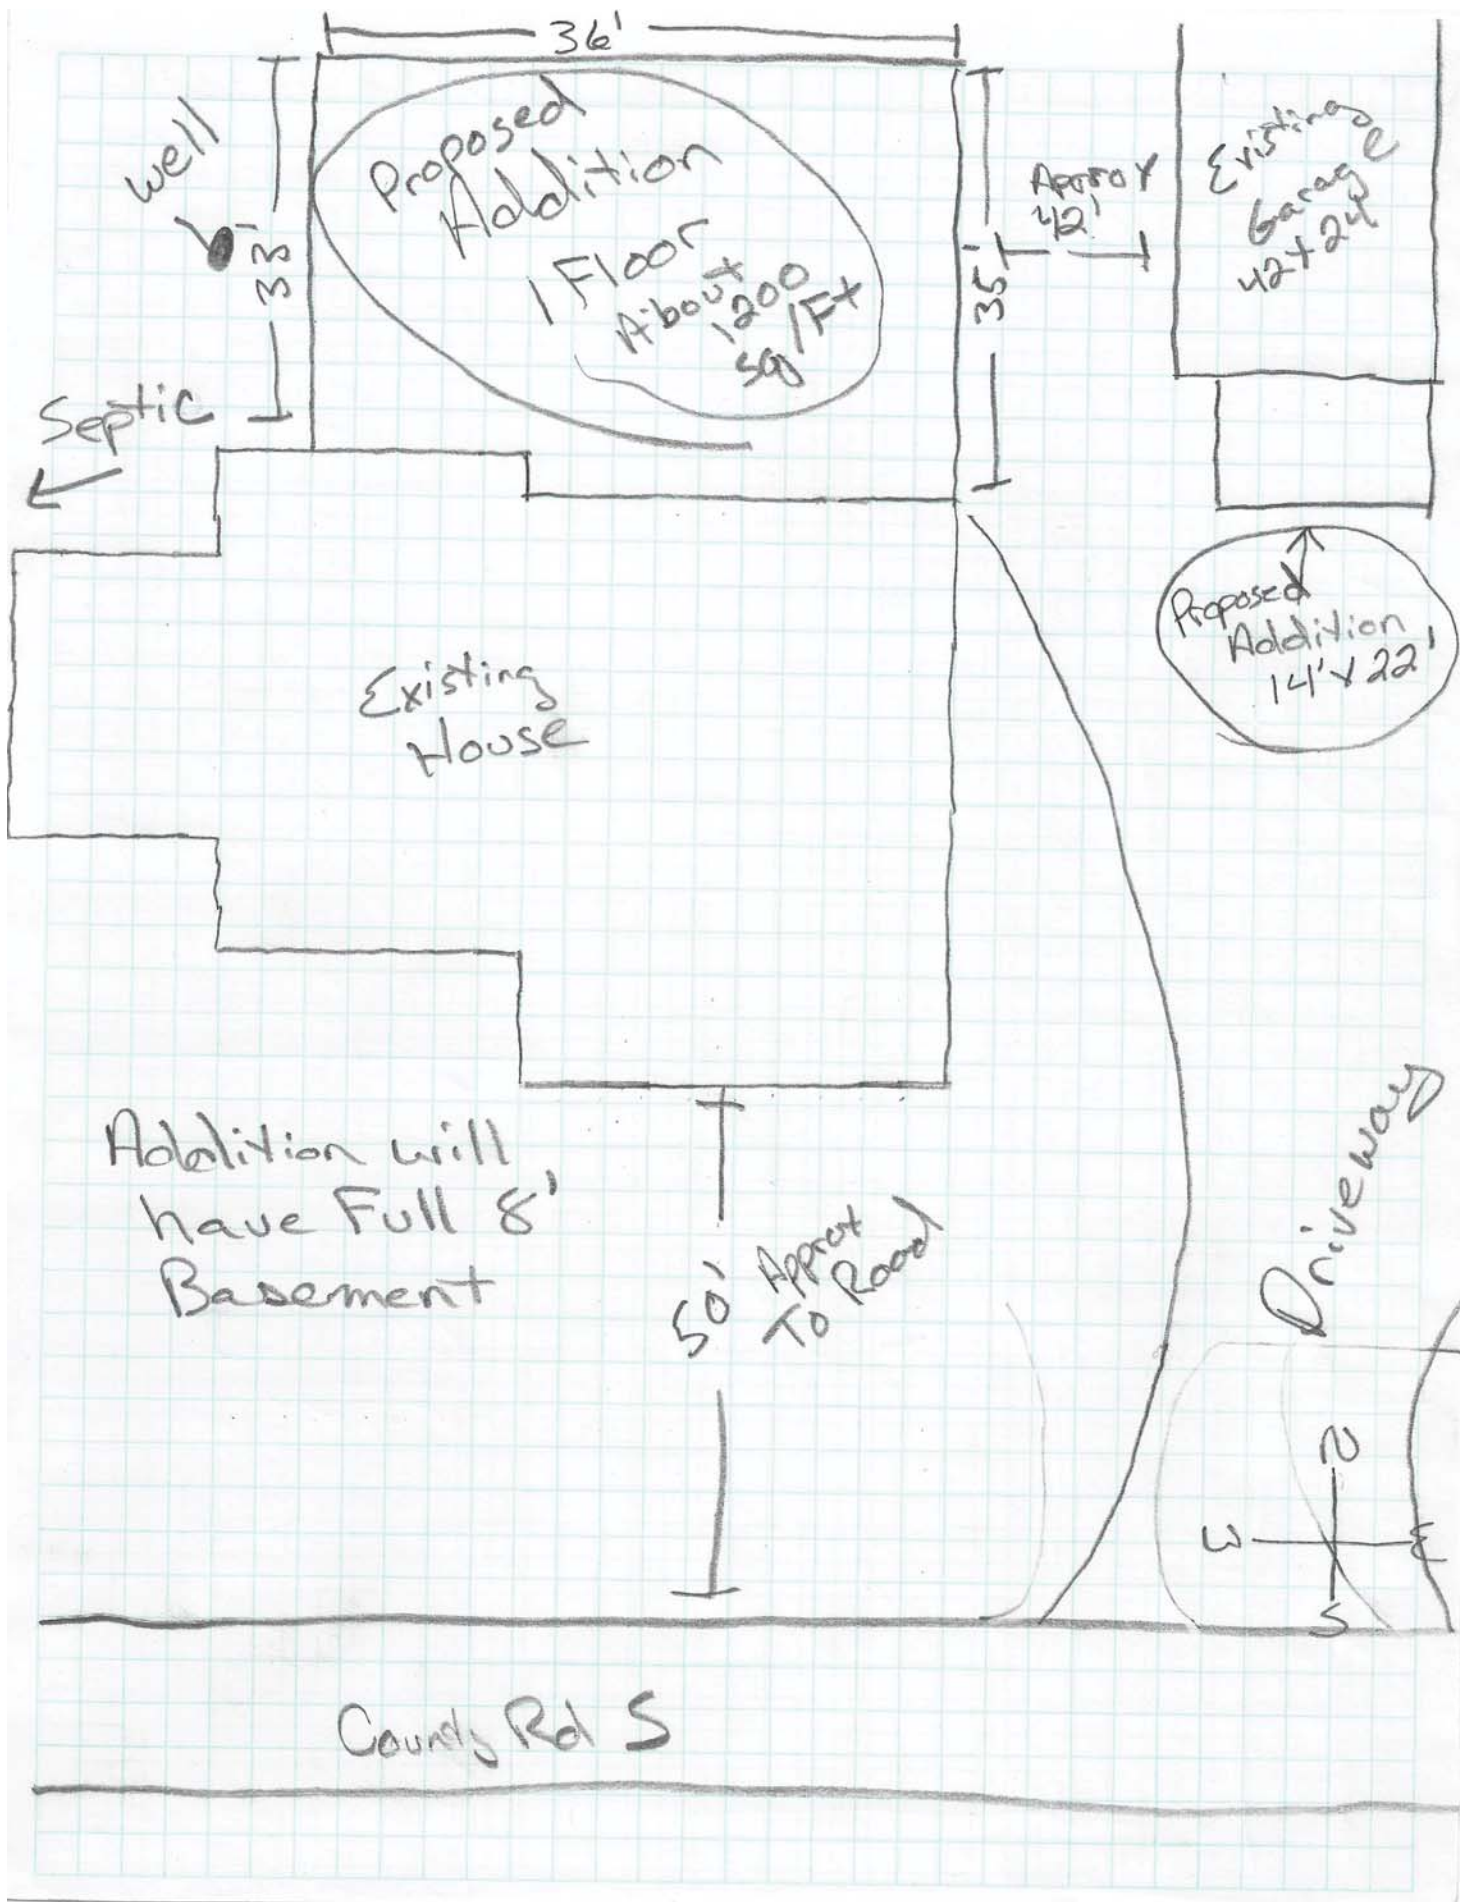 36'
well
33'
Proposed
Addition
1 Floor
About
1200
sq/Ft
35'
Approx
42'
Existing
Garage
42x24
Septic
Proposed
Addition
14'x22'
Existing
House
Addition will
have Full 8'
Basement
50'
Approx
To Road
Driveway
N
W
E
S
County Rd S